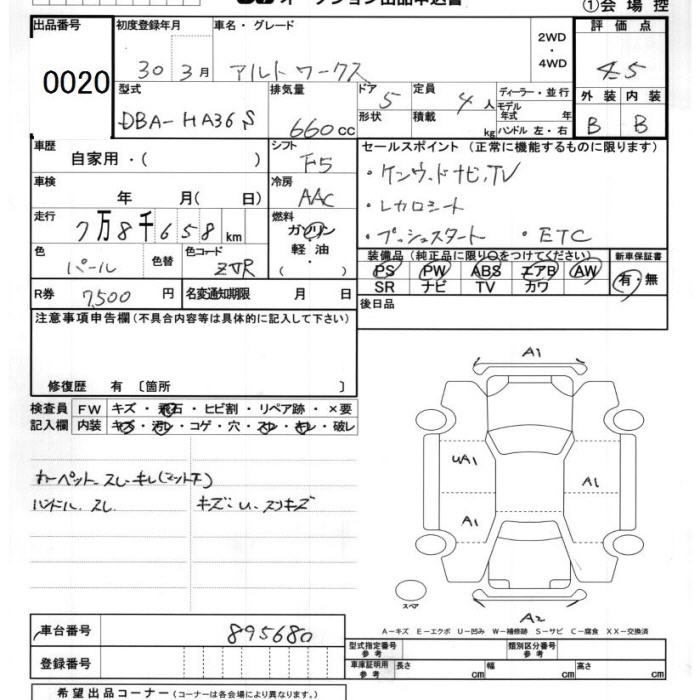 オークション出品申込書
①会場控
出品番号 初度登録年月 車名・グレード 評価点
0020 30 3月 アルトワークス 2WD・4WD 4.5
型式 排気量 ドア 5 定員 4人 ディーラー・並行 外装 内装
DBA-HA36S 660cc 形状 積載 kg モデル年式 年 B B
ハンドル 左・右
車歴 シフト セールスポイント(正常に機能するものに限ります)
自家用・( ) F5 ・ケンウッドナビ、TV
車検 冷房
年 月( 日) AAC ・レカロシート
走行 燃料
7万8千658km ガソリン・軽油・( ) ・プッシュスタート ・ETC
色 色替 色コード 装備品(純正品に限り○をつけてください) 新車保証書
パール ZVR PS PW ABS エアB AW 有・無
SR ナビ TV カワ
R券 7,500円 名変通知期限 月 日
後日品
注意事項申告欄(不具合内容等は具体的に記入して下さい)
修復歴 有 〔箇所 〕
検査員 FW キズ・飛石・ヒビ割・リペア跡・×要
記入欄 内装 キズ・汚レ・コゲ・穴・スレ・キレ・破レ
カーペット スレ・キレ(マット下)
ハンドル スレ キズ・U・スリキズ
A1
UA1
A1
A1
スペア
A2
A-キズ E-エクボ U-凹み W-補修跡 S-サビ C-腐食 XX-交換済
車台番号 895680
型式指定番号 参考 類別区分番号 参考
登録番号
車庫証明用 参考 長さ cm 幅 cm 高さ cm
希望出品コーナー(コーナーは各会場により異なります。)